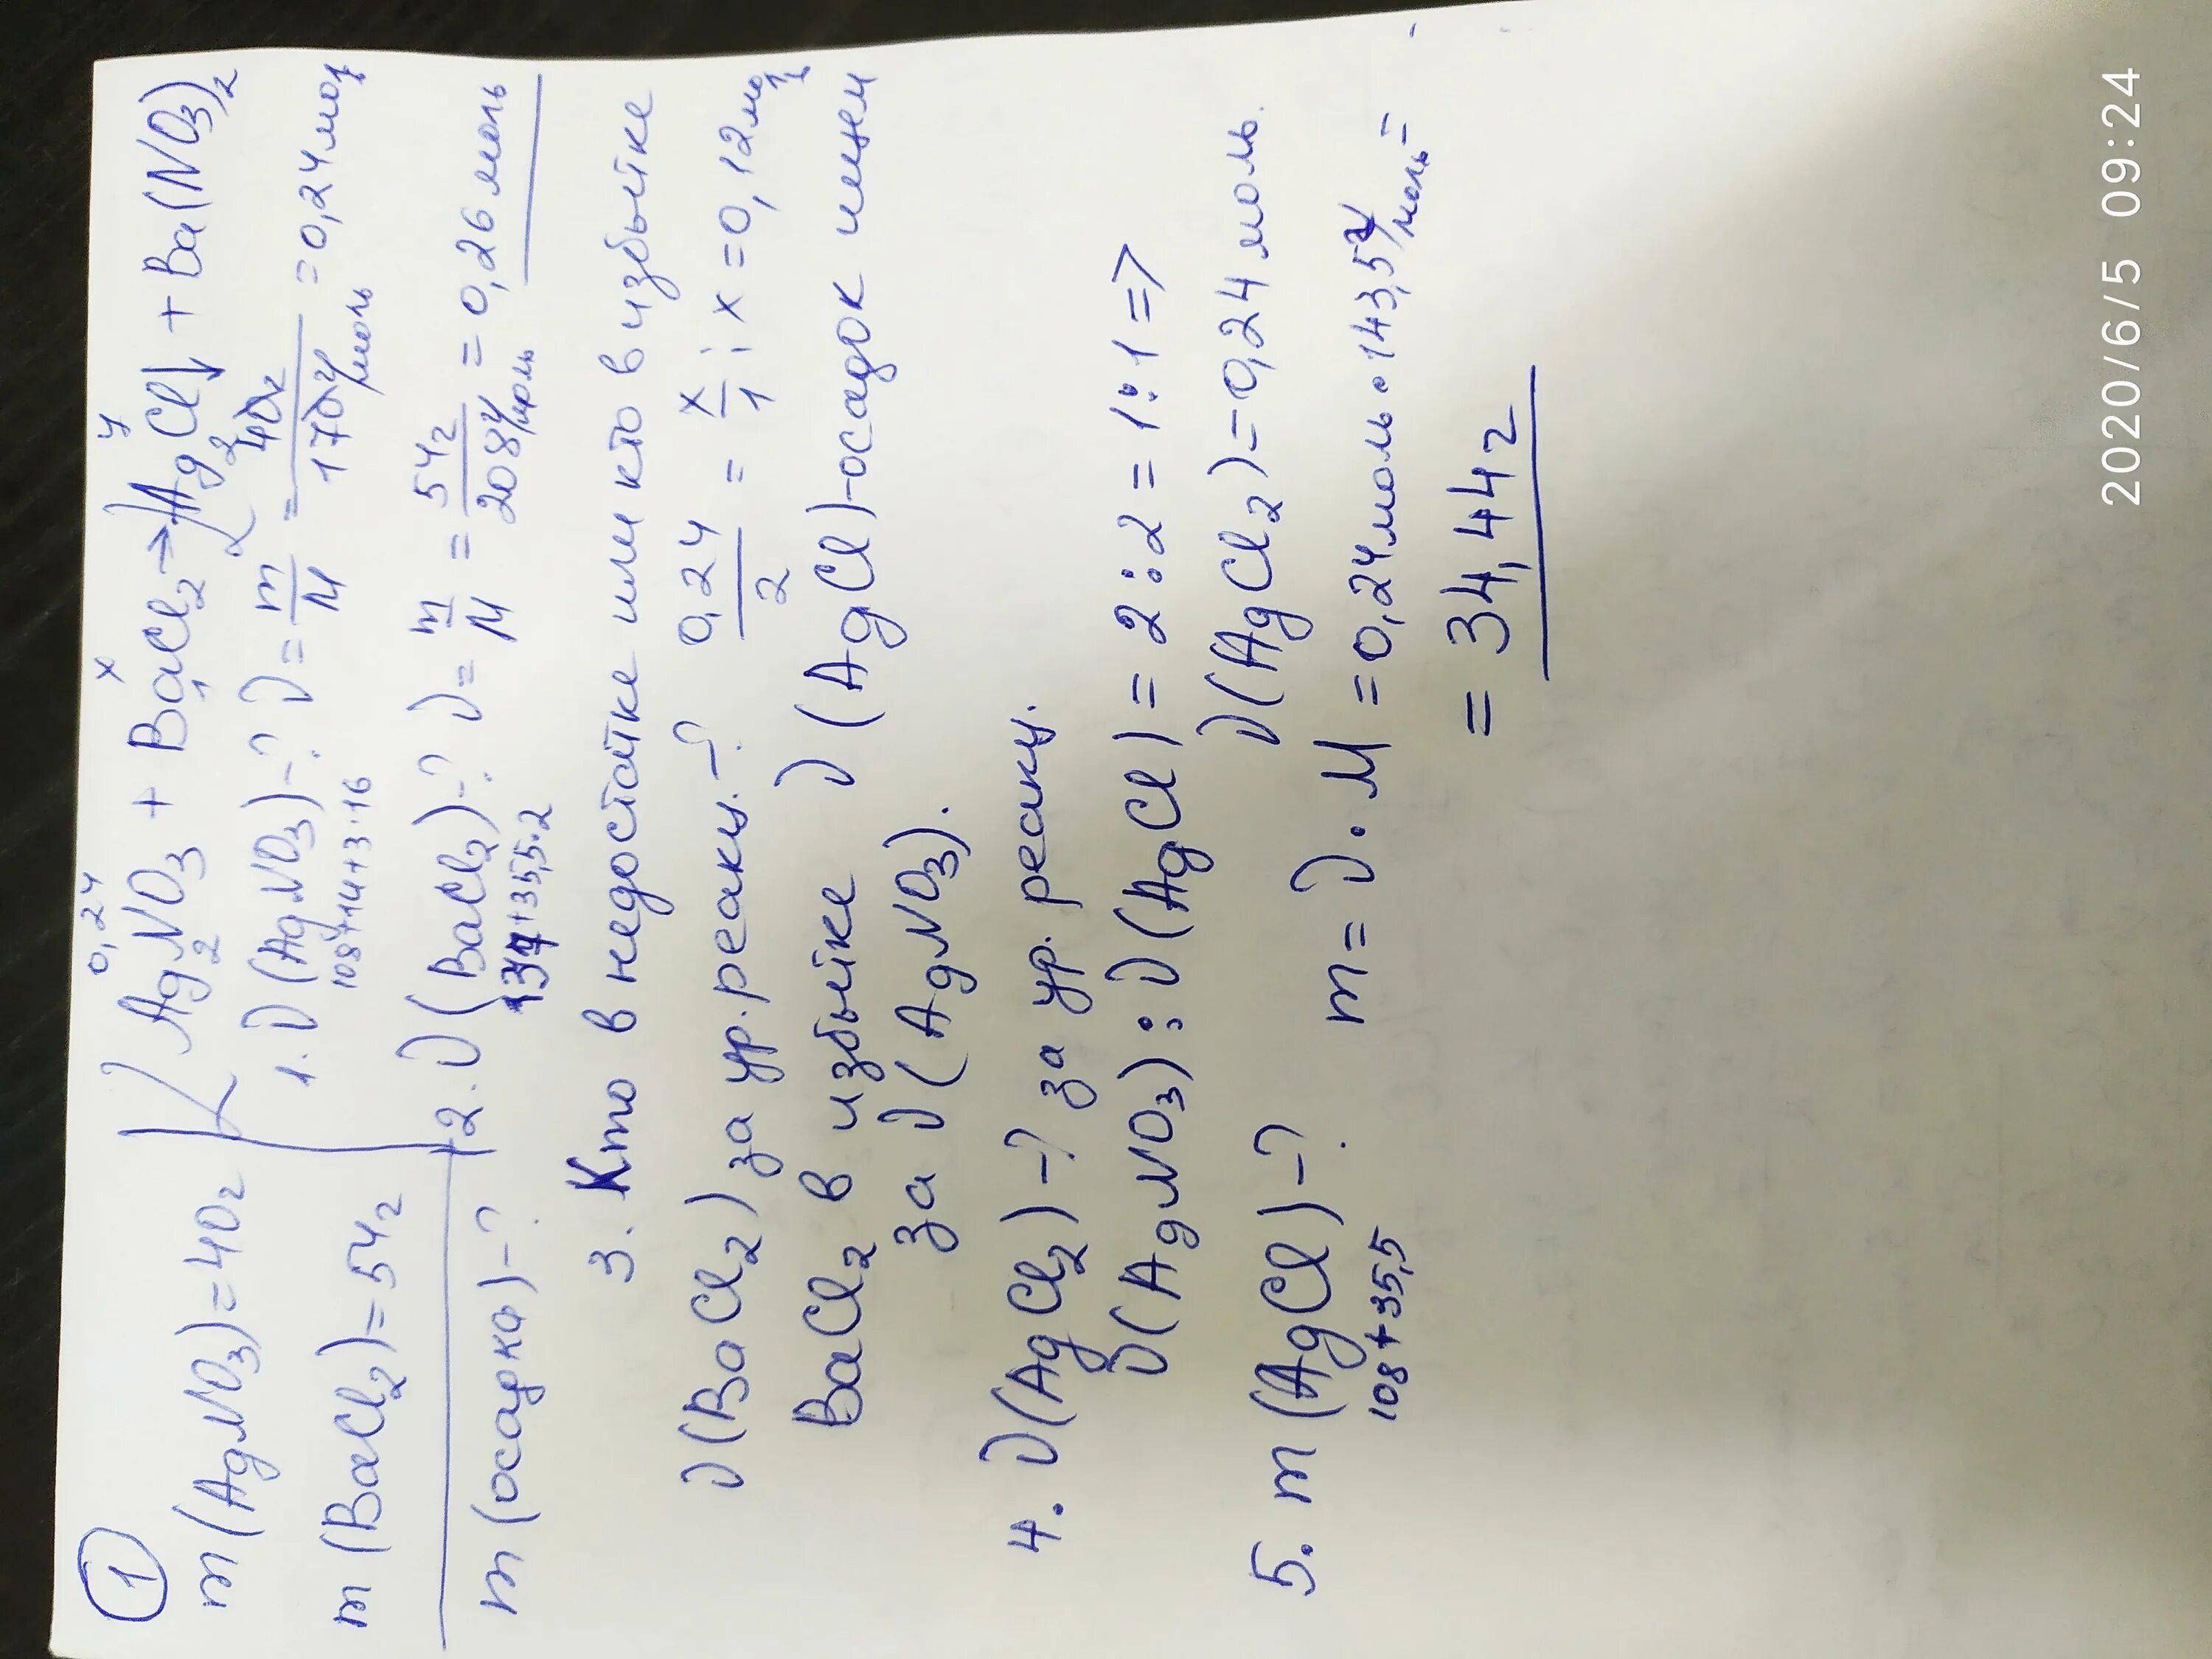 1
0,24 x y
AgNO3 + BaCl2 → AgCl↓ + Ba(NO3)2
2 1 2
m(AgNO3)=40г
m(BaCl2)=54г
m(осадка)-?
1. ν(AgNO3)-? ν = m/M = 40г/170г/моль = 0,24 мол
108+14+3·16
2. ν(BaCl2)-? ν = m/M = 54г/208г/моль = 0,26 моль
137+35,5·2
3. Кто в недостатке или кто в избытке
ν(BaCl2) за ур. реакц.-? 0,24/2 = x/1; x = 0,12 моль
BaCl2 в избытке ν(AgCl)-осадок ищем
за ν(AgNO3).
4. ν(AgCl2)-? за ур. реакц.
ν(AgNO3):ν(AgCl) = 2:2 = 1:1 =>
ν(AgCl2)=0,24 моль.
5. m(AgCl)-? m = ν·M = 0,24моль·143,5г/моль=
108+35,5
= 34,44г
2020/6/5 09:24